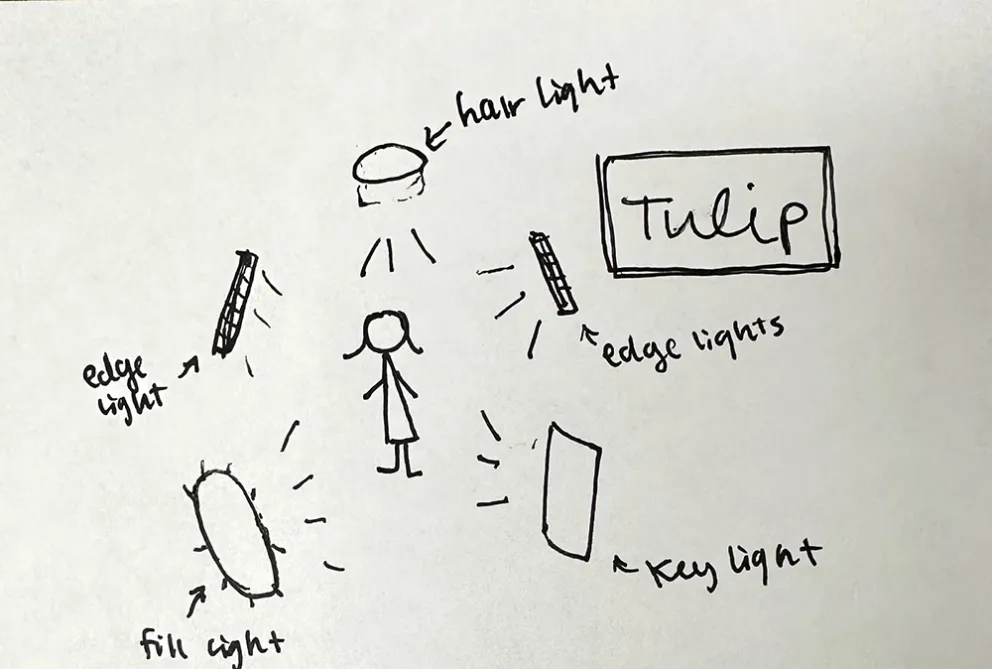 hair light
Tulip
edge lights
edge
light
key light
fill light